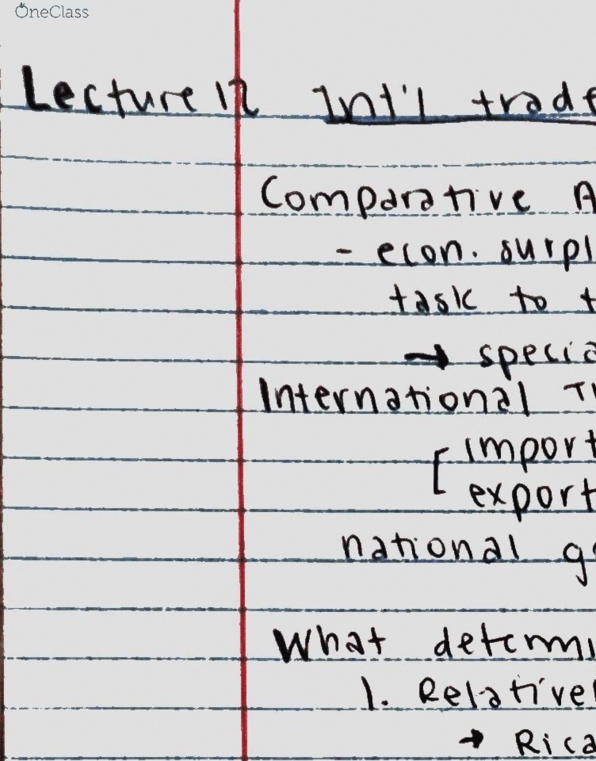 OneClass
Lecture 12 Int'l trade
Comparative A
- econ. surpl
task to t
→ specia
International T
[ import
export
national g
What determi
1. Relativel
→ Rica